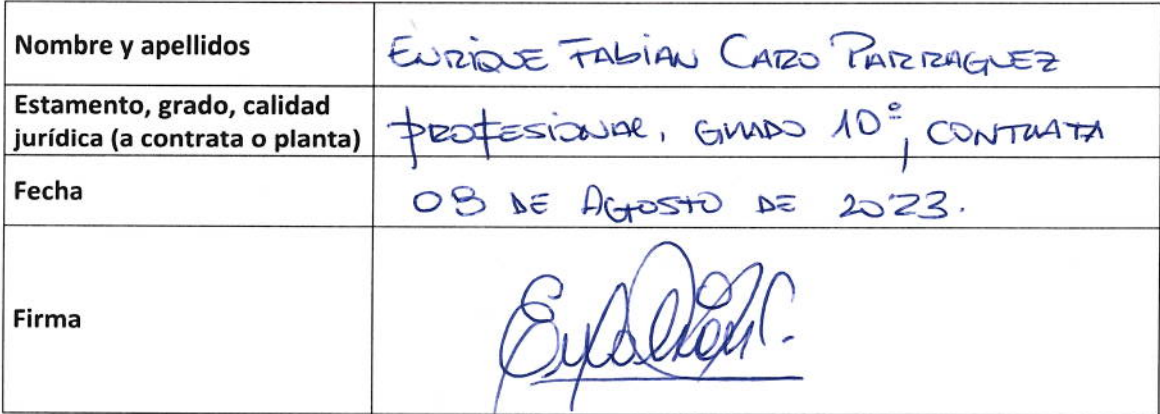 Nombre y apellidos
ENRIQUE FABIAN CARO PARRAGUEZ
Estamento, grado, calidad
jurídica (a contrata o planta)
PROFESIONAL, GRADO 10º, CONTRATA
Fecha
08 DE AGOSTO DE 2023.
Firma